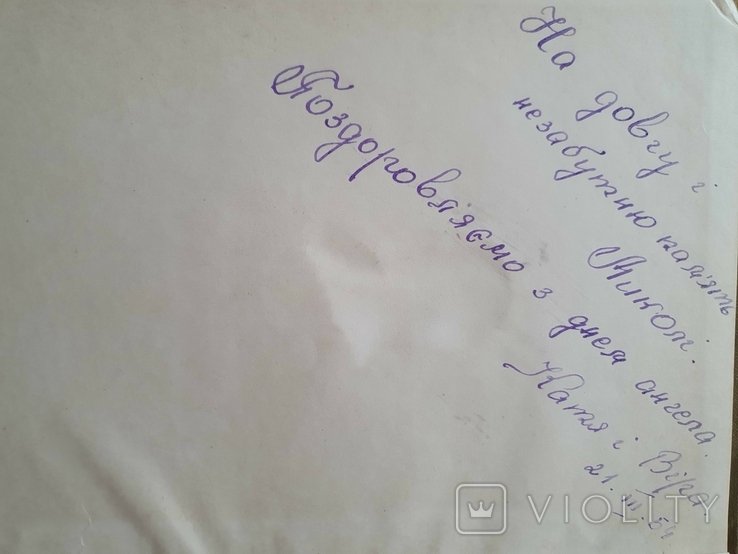 На довгу і
незабутню пам'ять
Миколі.
Поздоровляємо з днем ангела.
Катя і Віра.
21.III.54
VIOLITY